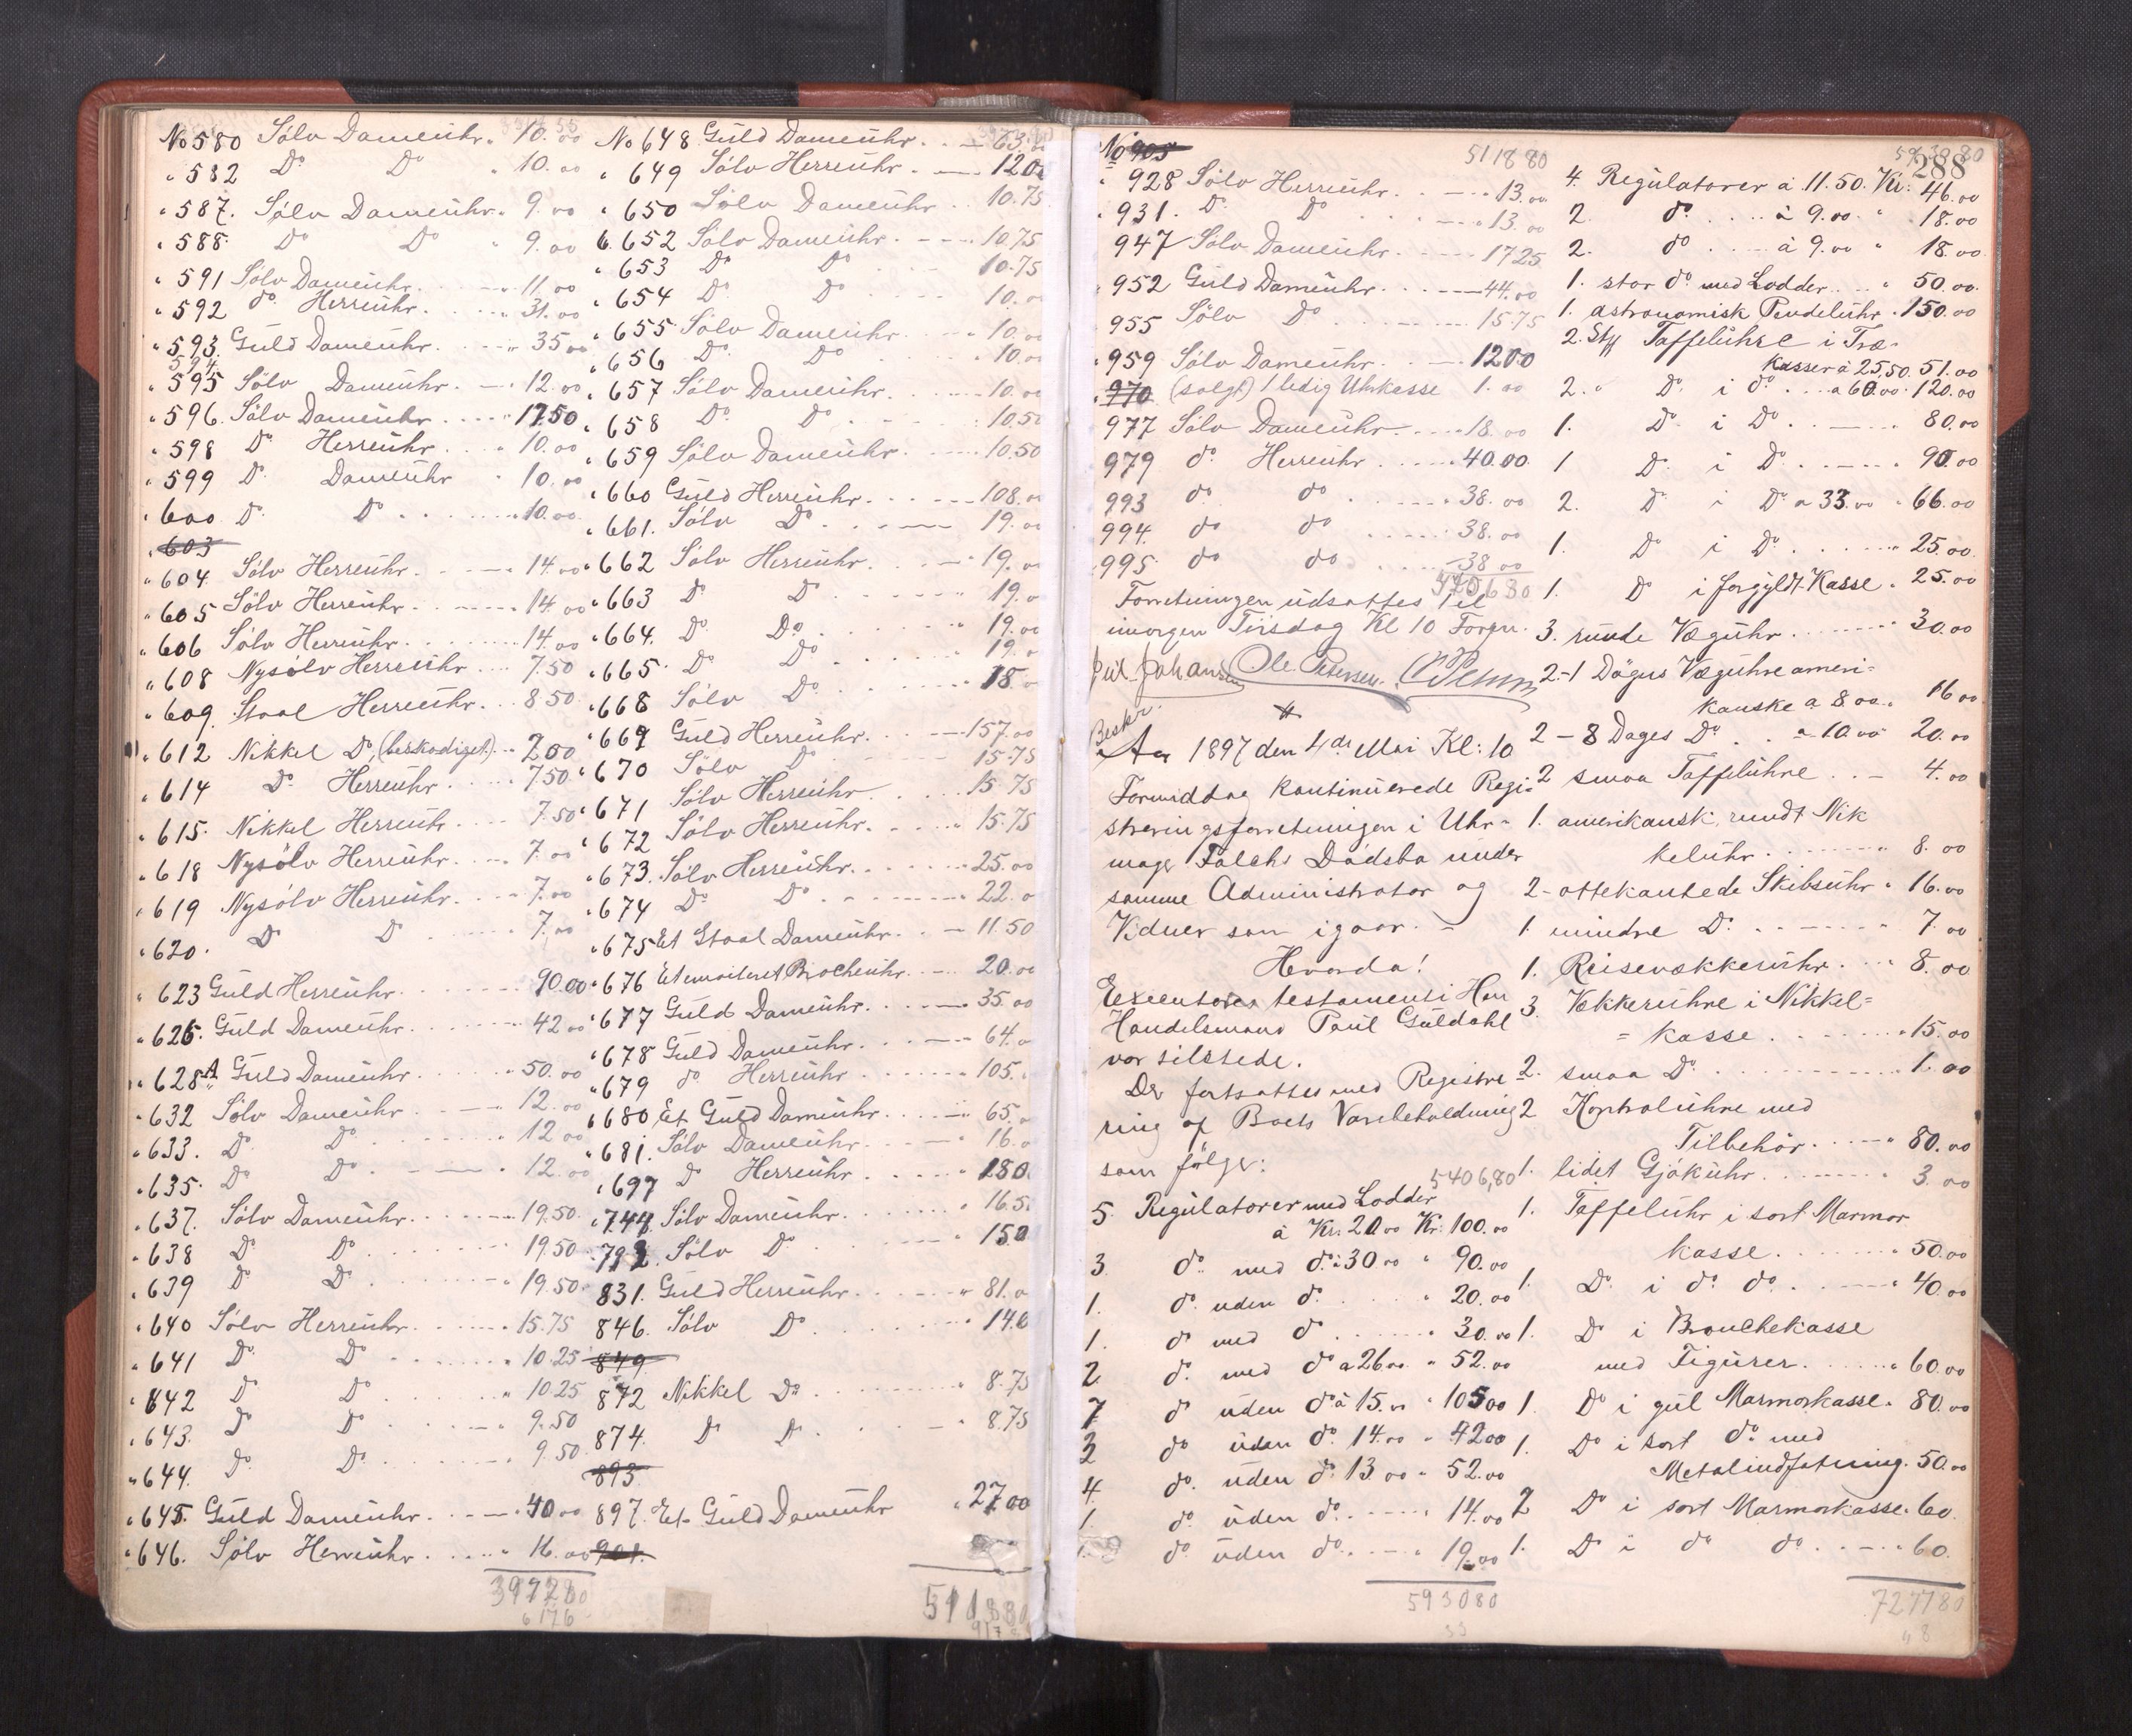 No 580 Sölv Dameuhr. 10.00
" 582 Do Do " 10.00
" 587. Sölv Dameuhr. 9.00
" 588. Do Do " 9.00
" 591 Sölv Dameuhr. 11.00
" 592 do Herreuhr. 31.00
" 593. Guld Dameuhr. 35.00
594
" 595 Sölv Dameuhr. 12.00
" 596. Sölv Dameuhr. 17.50
" 598 Do Herreuhr. 10.00
" 599 Do Dameuhr " 10.00
" 600 Do Do 10.00
" 603
" 604 Sölv Herreuhr. 14.00
" 605 Sölv Herreuhr. 14.00
" 606 Sölv Herreuhr. 14.00
" 608 Nysölv Herreuhr 7.50
" 609. Staal Herreuhr. 8.50
" 612 Nikkel Do, (beskadiget) 2.00
" 614 Do Herreuhr. 7.50
" 615. Nikkel Herreuhr. 7.50
" 618 Nysölv Herreuhr. 7.00
" 619 Nysölv Herreuhr. 7.00
" 620. Do Do 7.00
" 623 Guld Herreuhr. 90.00
" 626. Guld Dameuhr. 42.00
" 628A Guld Dameuhr. 50.00
" 632 Sölv Dameuhr. 12.00
" 633. Do Do 12.00
" 635. Do Do 12.00
" 637. Sölv Dameuhr. 19.50
" 638 Do Do 19.50
" 639 Do Do 19.50
" 640 Sölv Herreuhr. 15.75
" 641 Do Do 10.25
" 642 Do Do 10.25
" 643. Do Do 9.50
" 644. Do Do 9.50
" 645. Guld Dameuhr. 40.00
" 646. Sölv Herreuhr. 16.00
No 648 Guld Dameuhr. 63.00
" 649 Sölv Herreuhr. 12.00
" 650 Sölv Dameuhr 10.75
" 652 Sölv Dameuhr. 10.75
" 653 Do Do 10.75
" 654 Do Do 10.00
" 655 Sölv Dameuhr. 10.00
" 656 Do Do 10.00
" 657 Sölv Dameuhr. 10.00
" 658 Do Do 10.50
" 659 Sölv Dameuhr. 10.50
" 660 Guld Herreuhr. 108.00
" 661. Sölv Do 19.00
" 662 Sölv Herreuhr. 19.00
" 663 Do Do 19.0
" 664. Do Do 19.00
" 665. Do Do 19.0
" 668 Sölv Do 18.0
" 669 Guld Herreuhr. 157.00
" 670 Sölv Do 15.75
" 671 Sölv Herreuhr. 15.75
" 672 Sölv Herreuhr. 15.75
" 673. Sölv Herreuhr. 25.00
" 674 Do Do 22.0
" 675 Et Staal Dameuhr. 11.50
" 676 Et emaileret Brocheuhr. 20.00
" 677 Guld Dameuhr. 35.00
" 678 Guld Dameuhr. 64.0
" 679 do Herreuhr 105.
" 680 Et Guld Dameuhr. 65.0
" 681. Sölv Dameuhr. 16.0
" 697 Do Herreuhr.
" 744 Sölv Dameuhr. 16.5
Sölv Do 15.0
831. Guld Herreuhr. 81.0
846. Sölv Do 14.0
849
872 Nikkel Do 8.75
874. Do Do 8.75
893
897. Et Guld Dameuhr 27.00
901.
511880
No 905 511880
" 928 Sölv Herreuhr. 13.00
" 931. Do Do 13.00
947 Sölv Dameuhr. 17.25
" 952 Guld Dameuhr. 44.00
955 Sölv Do 15.75
" 959 Sölv Dameuhr. 12.00
" 970 (solgt) 1 ledig Uhrkasse 1.00
977 Sölv Dameuhr. 18.00
979 do Herreuhr. 40.00
993 do do 38.00
994. do do 38.00
995. do do 38.00
Forretningen udsattes til
imorgen Tirsdag Kl 10 Form.
Jul. Johansen Ole Petersen.
Beskr.
Aar 1897 den 4de Mai Kl: 10
Formiddag kontinuerede Regi-
streringsforretningen i Uhr-
mager Falchs Dødsbo under
samme Administrator og
Vidner som igaar. -
Hvorda!
Executores testamenti Herr
Handelsmand Paul Guldahl
var tilstede.
Der fortsattes med Registre-
ring af Boets Varebeholdning
som følger: 5406,80
5. Regulatorer med Lodder
à Kr. 20.00 Kr. 100.00
3. do med do à 30.00 " 90.00
1. do uden do " 20.00
1. do med do " 30.00
2 do med do a 26.00 " 52.00
7 do uden do à 15.00 " 105.00
3 do uden do 14.00 " 42.00
4. do uden do 13.00 " 52.00
1. do uden do 14.00
1. do uden do " 19.00
593080
288
593080
4. Regulatorer à 11.50. Kr. 46.00
2. do à 9.00 " 18.00
2. do à 9.00 " 18.00
1. stor do med Lodder " 50.00
1. astronomisk Pendeluhr 150.00
2. Stk Taffeluhre i Træ-
kasser à 25,50. 51.00
2. " Do i do a 60.00 120.00
1. Do i Do 80.00
1 Do i Do 90.00
2. Do i Do a 33.00 " 66.00
1. Do i Do 25.00
1. Do i forgyldt Kasse " 25.00
3. runde Væguhr 30.00
2.-1 Døgns Væguhre ameri-
kanske a 8.00 " 16.00
2 - 8 Dages Do a 10.00 20.00
2 smaa Taffeluhre 4.00
1. amerikansk rundt Nik
keluhr " 8.00
2- ottekantede Skibsuhr " 16.00
1. mindre Do " 7.00
1. Reisevækkeruhr " 8.00
3. Vækkeruhre i Nikkel=
= kasse " 15.00
2. smaa Do 1.00
2 Kontroluhre med
Tilbehör " 80.00
1. lidet Gjökuhr 3.00
1. Taffeluhr i sort Marmor
kasse " 50.00
1. Do i do do " 40.00
1. Do i Broncekasse
med Figurer " 60.00
1. Do i gul Marmorkasse " 80.00
1. Do i sort do med
Metalindfatning. 50.00
2 Do i sort Marmorkasse " 60.
1. Do i do do " 60.
727780